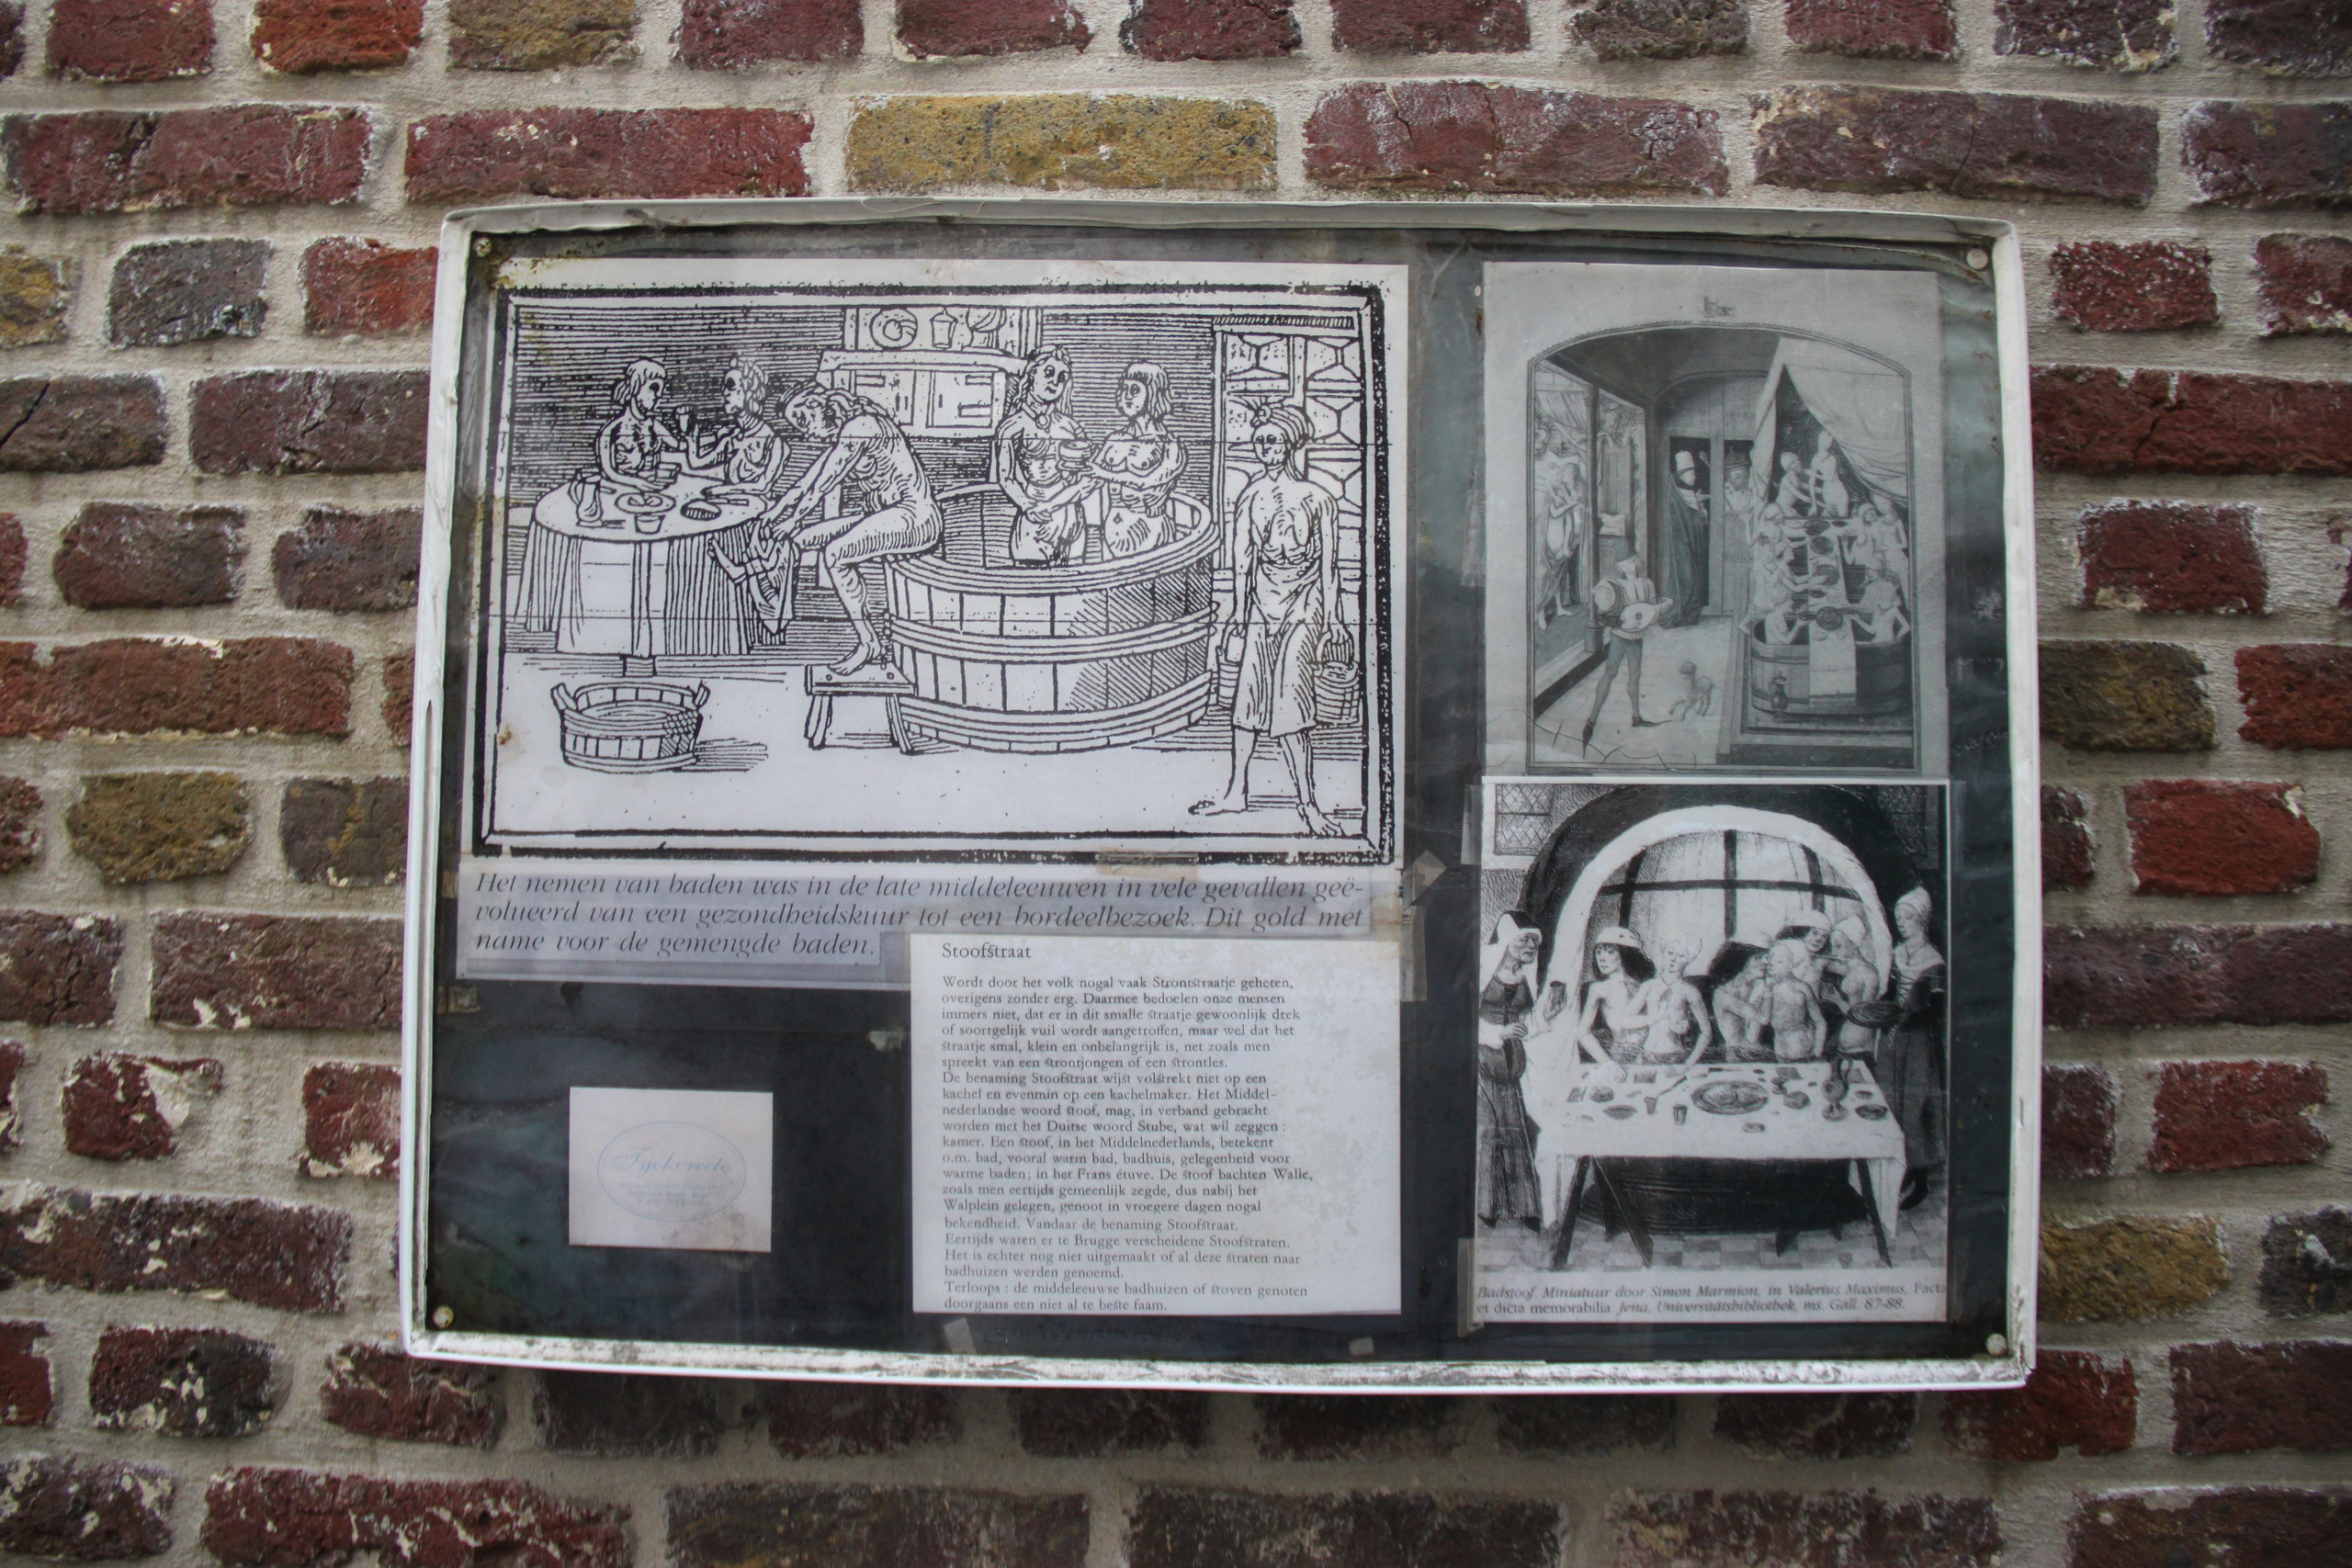 Het nemen van baden was in de late middeleeuwen in vele gevallen geë-
volueerd van een gezondheidskuur tot een bordeelbezoek. Dit gold met
name voor de gemengde baden.
Stoofstraat
Wordt door het volk nogal vaak Strontstraatje geheten,
overigens zonder erg. Daarmee bedoelen onze mensen
immers niet, dat er in dit smalle straatje gewoonlijk drek
of soortgelijk vuil wordt aangetroffen, maar wel dat het
straatje smal, klein en onbelangrijk is, net zoals men
spreekt van een strontjongen of een strontles.
De benaming Stoofstraat wijst volstrekt niet op een
kachel en evenmin op een kachelmaker. Het Middel-
nederlandse woord stoof, mag, in verband gebracht
worden met het Duitse woord Stube, wat wil zeggen :
kamer. Een stoof, in het Middelnederlands, betekent
o.m. bad, vooral warm bad, badhuis, gelegenheid voor
warme baden; in het Frans étuve. De stoof bachten Walle,
zoals men eertijds gemeenlijk zegde, dus nabij het
Walplein gelegen, genoot in vroegere dagen nogal
bekendheid. Vandaar de benaming Stoofstraat.
Eertijds waren er te Brugge verscheidene Stoofstraten.
Het is echter nog niet uitgemaakt of al deze straten naar
badhuizen werden genoemd.
Terloops : de middeleeuwse badhuizen of stoven genoten
doorgaans een niet al te beste faam.
Badstoof. Miniatuur door Simon Marmion, in Valerius Maximus, Facta
et dicta memorabilia Jena, Universitätsbibliothek, ms. Gall. 87-88.